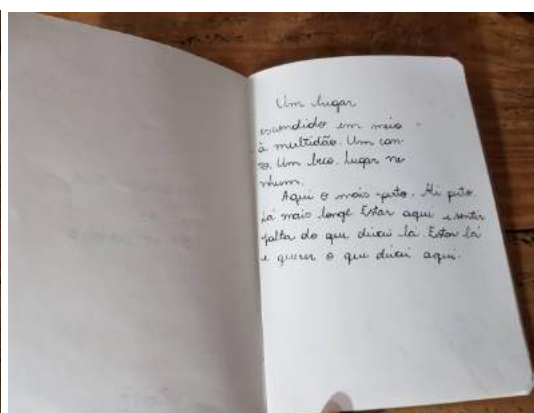 Um lugar
escondido em meio
à multidão. Um can-
to. Um beco. Lugar ne
nhum.
Aqui o mais perto. Ali perto.
Lá mais longe Estar aqui e sentir
falta do que deixei lá. Estar lá
e querer o que deixei aqui.